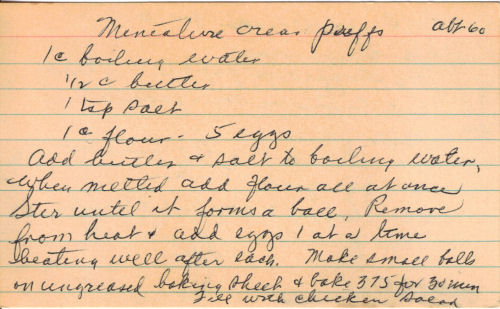 Meneature cream puffs abt 60
1c boiling water
1/2 c butter
1 tsp salt
1c flour - 5 eggs
Add butter & salt to boiling water,
when melted add flour all at once
Ster until it forms a ball, Remove
from heat & add eggs 1 at a time
beating well after each. Make small balls
on ungreased baking sheet & bake 375 for 30 min
Fill with chicken salad